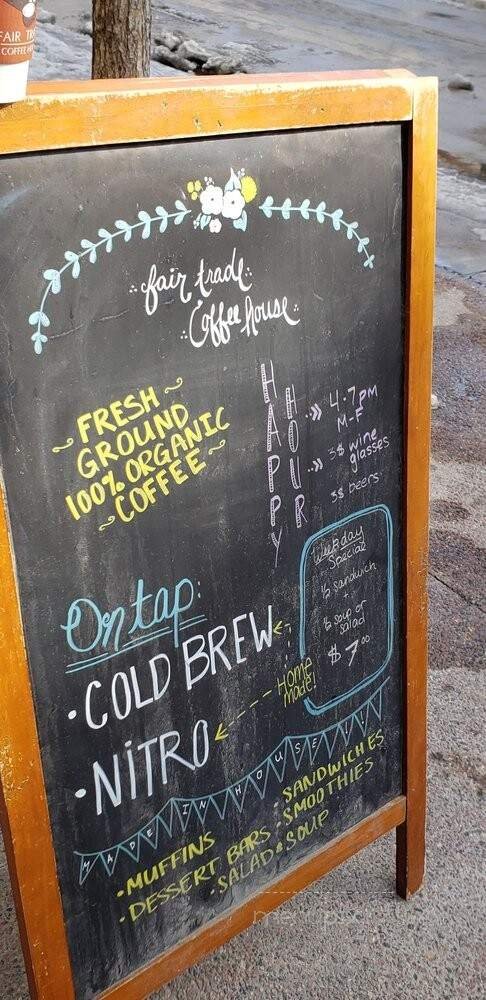 FAIR TR
COFFEE H
fair trade
Coffee house
FRESH
GROUND
100% ORGANIC
COFFEE
HAPPY
HOUR
4-7pm
M-F
3$ wine
glasses
3$ beers
Weekday
Special
½ sandwich
+
½ soup or
salad
$7.00
On tap:
• COLD BREW
• NiTRO
Home
made!
MADE IN HOUSE
• MUFFINS
• DESSERT BARS
• SANDWICHES
• SMOOTHIES
• SALAD & SOUP